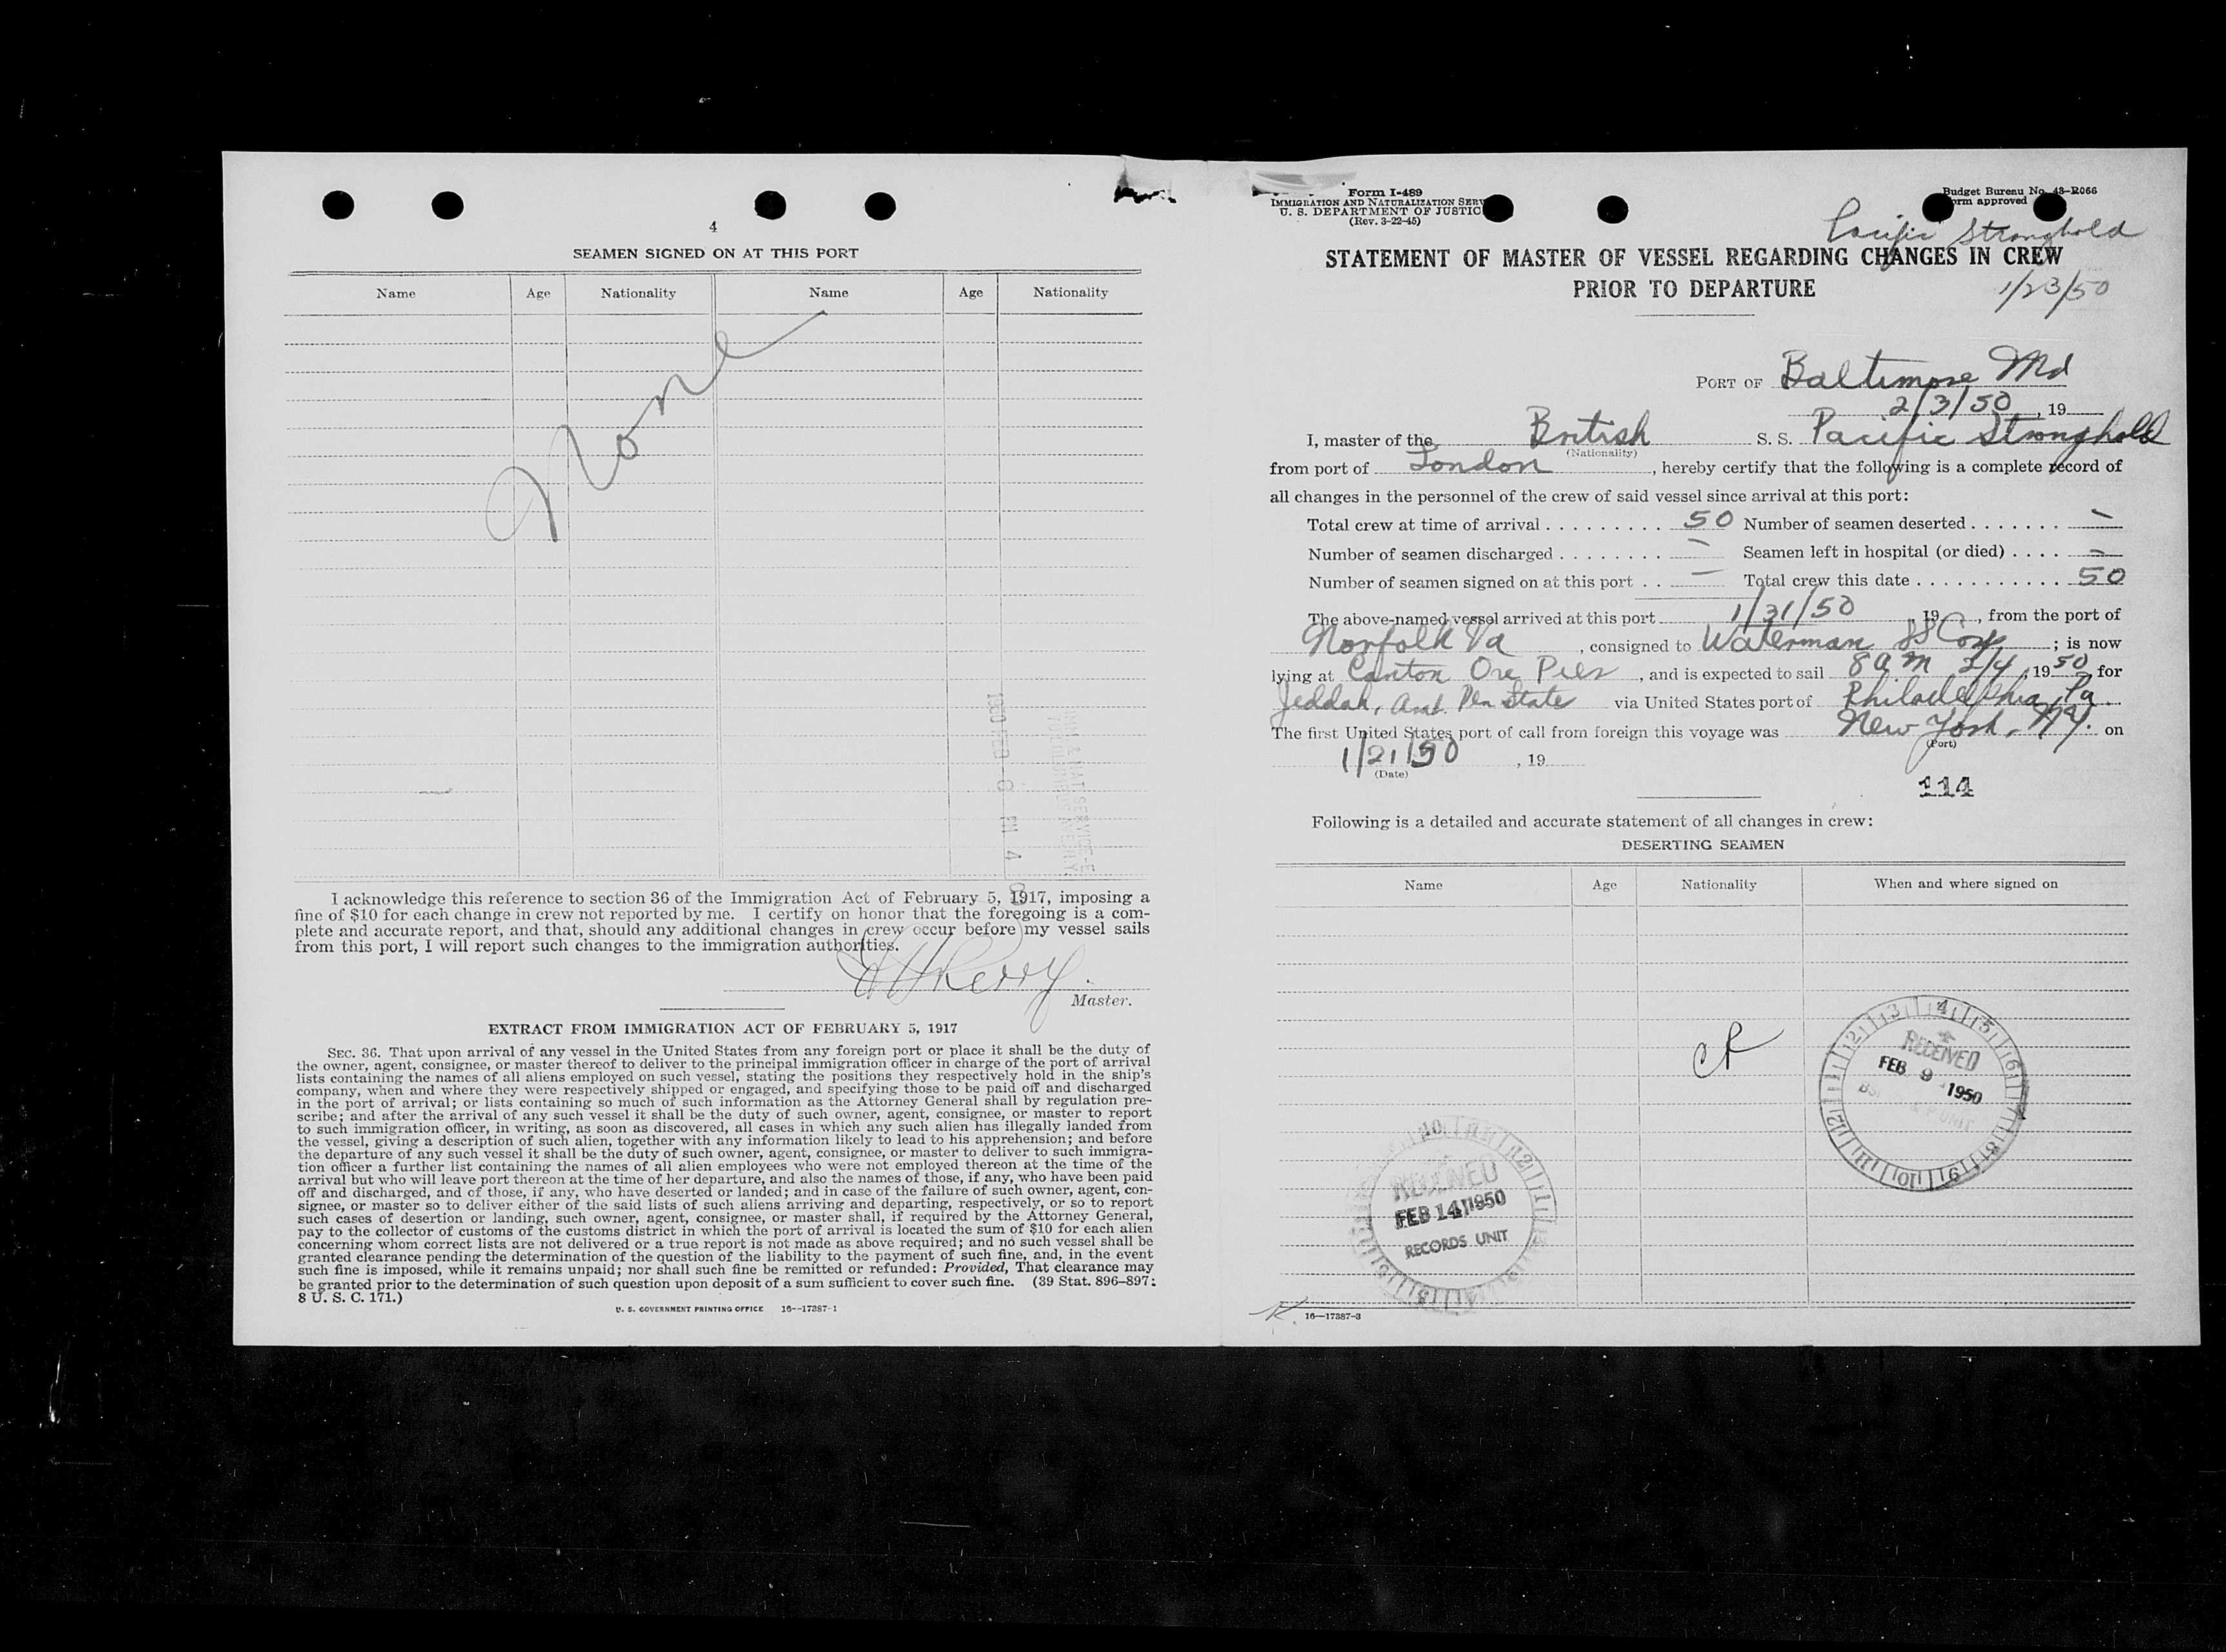 4
SEAMEN SIGNED ON AT THIS PORT
Name Age Nationality Name Age Nationality
None
I acknowledge this reference to section 36 of the Immigration Act of February 5, 1917, imposing a
fine of $10 for each change in crew not reported by me. I certify on honor that the foregoing is a com-
plete and accurate report, and that, should any additional changes in crew occur before my vessel sails
from this port, I will report such changes to the immigration authorities.
Master.
EXTRACT FROM IMMIGRATION ACT OF FEBRUARY 5, 1917
SEC. 36. That upon arrival of any vessel in the United States from any foreign port or place it shall be the duty of
the owner, agent, consignee, or master thereof to deliver to the principal immigration officer in charge of the port of arrival
lists containing the names of all aliens employed on such vessel, stating the positions they respectively hold in the ship's
company, when and where they were respectively shipped or engaged, and specifying those to be paid off and discharged
in the port of arrival; or lists containing so much of such information as the Attorney General shall by regulation pre-
scribe; and after the arrival of any such vessel it shall be the duty of such owner, agent, consignee, or master to report
to such immigration officer, in writing, as soon as discovered, all cases in which any such alien has illegally landed from
the vessel, giving a description of such alien, together with any information likely to lead to his apprehension; and before
the departure of any such vessel it shall be the duty of such owner, agent, consignee, or master to deliver to such immigra-
tion officer a further list containing the names of all alien employees who were not employed thereon at the time of the
arrival but who will leave port thereon at the time of her departure, and also the names of those, if any, who have been paid
off and discharged, and of those, if any, who have deserted or landed; and in case of the failure of such owner, agent, con-
signee, or master so to deliver either of the said lists of such aliens arriving and departing, respectively, or so to report
such cases of desertion or landing, such owner, agent, consignee, or master shall, if required by the Attorney General,
pay to the collector of customs of the customs district in which the port of arrival is located the sum of $10 for each alien
concerning whom correct lists are not delivered or a true report is not made as above required; and no such vessel shall be
granted clearance pending the determination of the question of the liability to the payment of such fine, and, in the event
such fine is imposed, while it remains unpaid; nor shall such fine be remitted or refunded: Provided, That clearance may
be granted prior to the determination of such question upon deposit of a sum sufficient to cover such fine. (39 Stat. 896-897;
8 U. S. C. 171.)
U. S. GOVERNMENT PRINTING OFFICE 16—17387-1
Form I-489
IMMIGRATION AND NATURALIZATION SERV
U. S. DEPARTMENT OF JUSTIC
(Rev. 3-22-45)
Budget Bureau No. 43-R066
orm approved
Pacific Stronghold
STATEMENT OF MASTER OF VESSEL REGARDING CHANGES IN CREW
PRIOR TO DEPARTURE
1/23/50
PORT OF Baltimore Md
2/3/50, 19
I, master of the British S. S. Pacific Stronghold
(Nationality)
from port of London, hereby certify that the following is a complete record of
all changes in the personnel of the crew of said vessel since arrival at this port:
Total crew at time of arrival . . . . . . . . . 50 Number of seamen deserted . . . . . . . -
Number of seamen discharged . . . . . . . . - Seamen left in hospital (or died) . . . . -
Number of seamen signed on at this port . . - Total crew this date . . . . . . . . . . . 50
The above-named vessel arrived at this port 1/31/50, 19, from the port of
Norfolk Va, consigned to Waterman SS Corp; is now
lying at Canton Ore Pier, and is expected to sail 8 am 2/4, 1950, for
Jeddah, State via United States port of Philadelphia, Pa.
The first United States port of call from foreign this voyage was New York, NY. on
(Port)
1/21/50, 19
(Date)
114
Following is a detailed and accurate statement of all changes in crew:
DESERTING SEAMEN
Name Age Nationality When and where signed on
RECEIVED
FEB 9 1950
RECEIVED
FEB 14 1950
RECORDS UNIT
16—17387-3